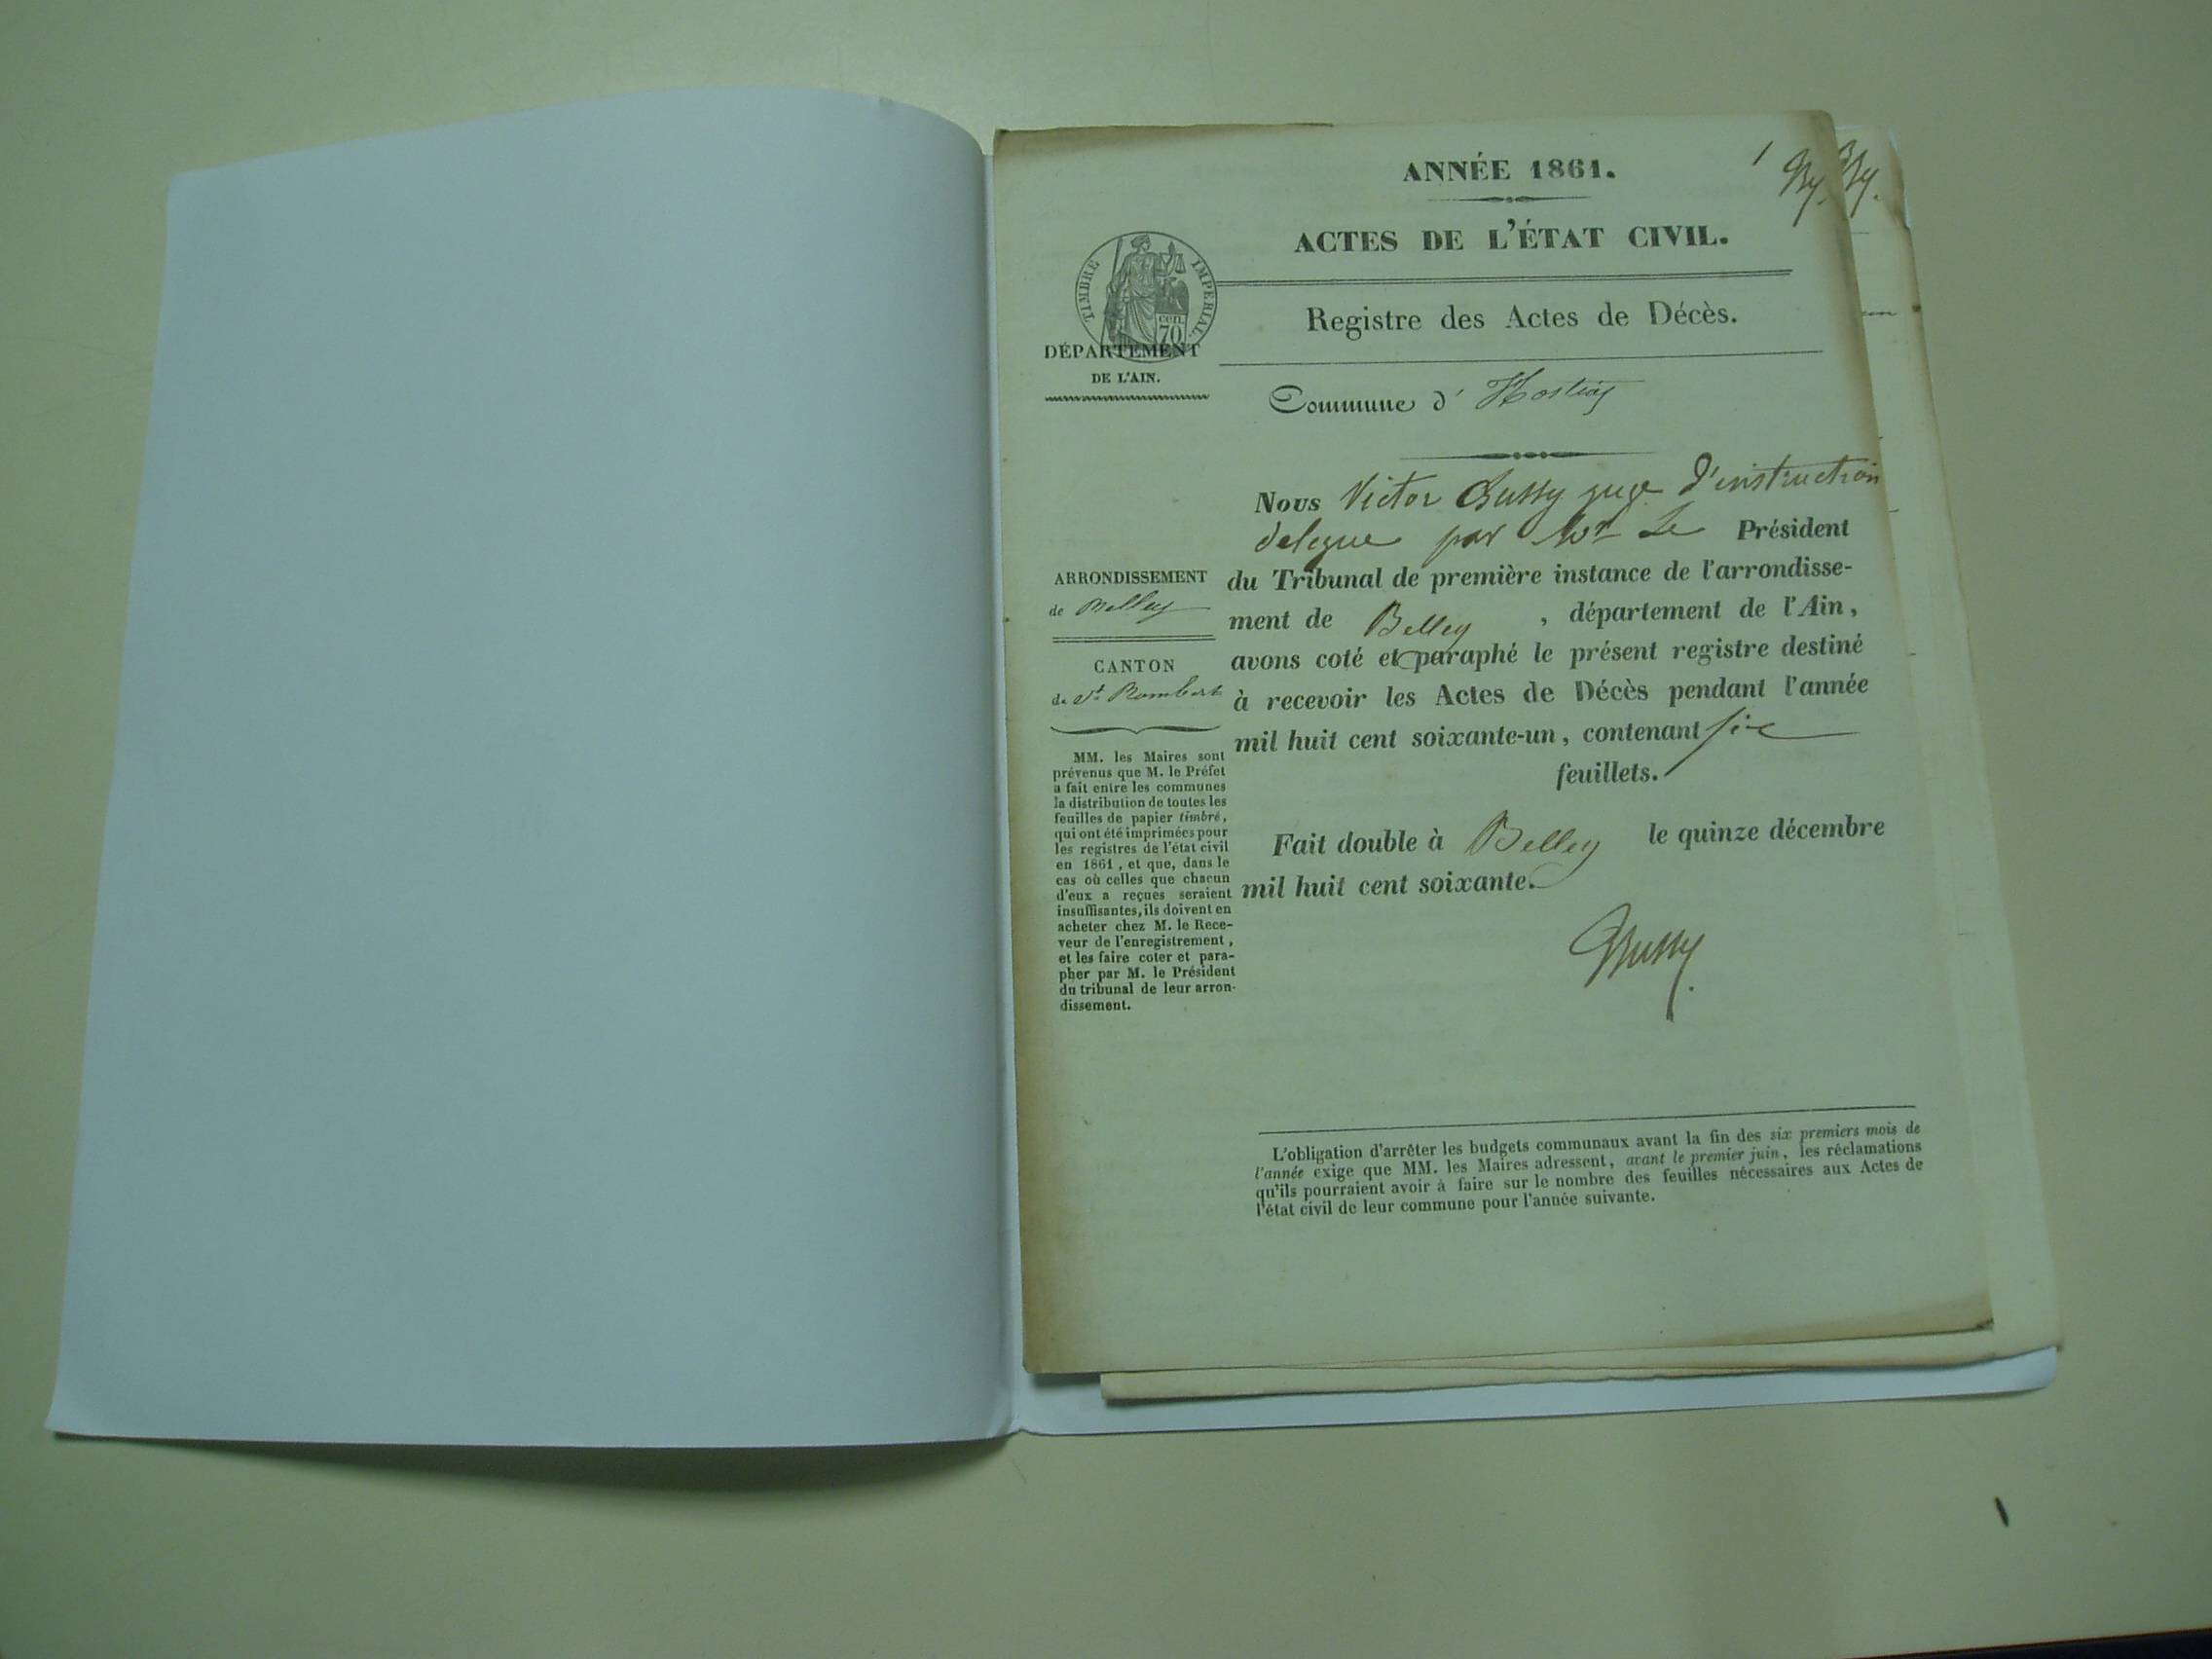 ANNÉE 1861.
1
ACTES DE L'ÉTAT CIVIL.
TIMBRE IMPERIAL
cen. 70
Registre des Actes de Décès.
DÉPARTEMENT
DE L'AIN.
Commune d' Hostias
Nous Victor Bussy juge d'instruction
delegue par Mr Le Président
du Tribunal de première instance de l'arrondisse-
ment de Belley , département de l'Ain,
avons coté et paraphé le présent registre destiné
à recevoir les Actes de Décès pendant l'année
mil huit cent soixante-un, contenant six
feuillets.
Fait double à Belley le quinze décembre
mil huit cent soixante.
Bussy
ARRONDISSEMENT
de Belley
CANTON
de St Rambert
MM. les Maires sont
prévenus que M. le Préfet
a fait entre les communes
la distribution de toutes les
feuilles de papier timbré,
qui ont été imprimées pour
les registres de l'état civil
en 1861, et que, dans le
cas où celles que chacun
d'eux a reçues seraient
insuffisantes, ils doivent en
acheter chez M. le Rece-
veur de l'enregistrement,
et les faire coter et para-
pher par M. le Président
du tribunal de leur arron-
dissement.
L'obligation d'arrêter les budgets communaux avant la fin des six premiers mois de
l'année exige que MM. les Maires adressent, avant le premier juin, les réclamations
qu'ils pourraient avoir à faire sur le nombre des feuilles nécessaires aux Actes de
l'état civil de leur commune pour l'année suivante.